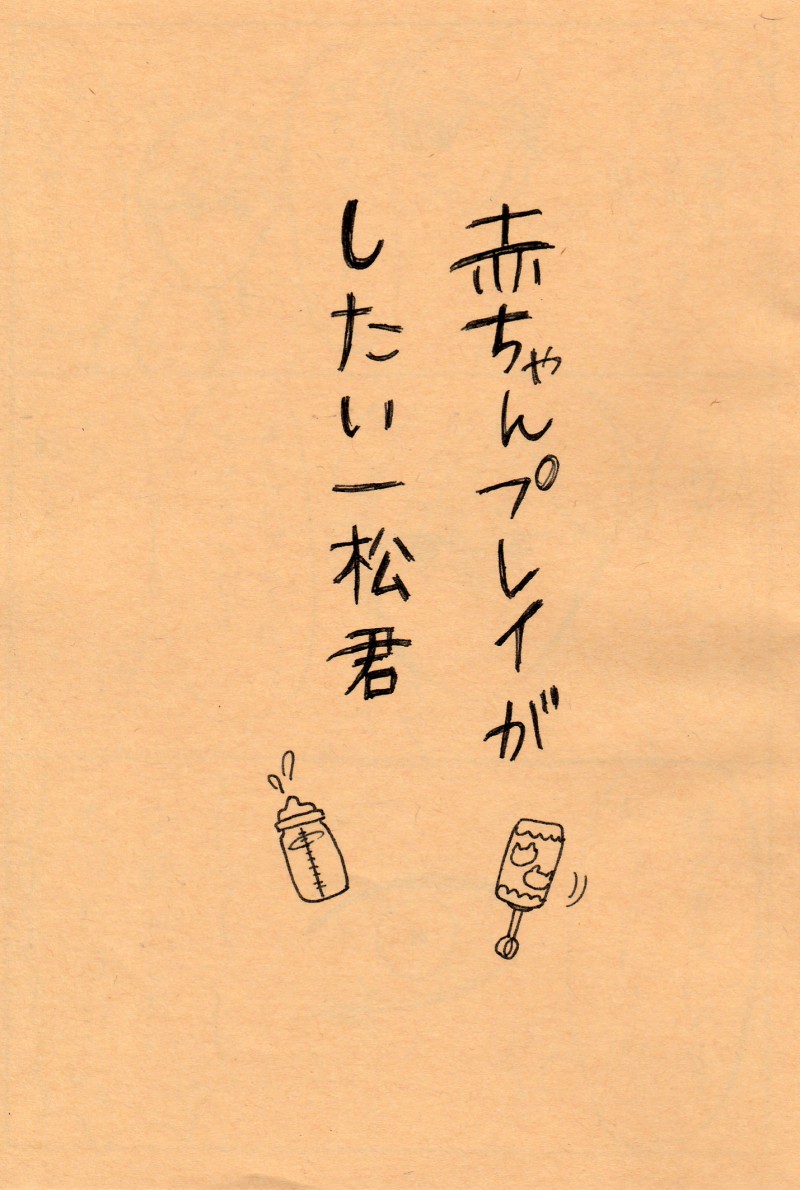 赤ちゃんプレイが
したい一松君